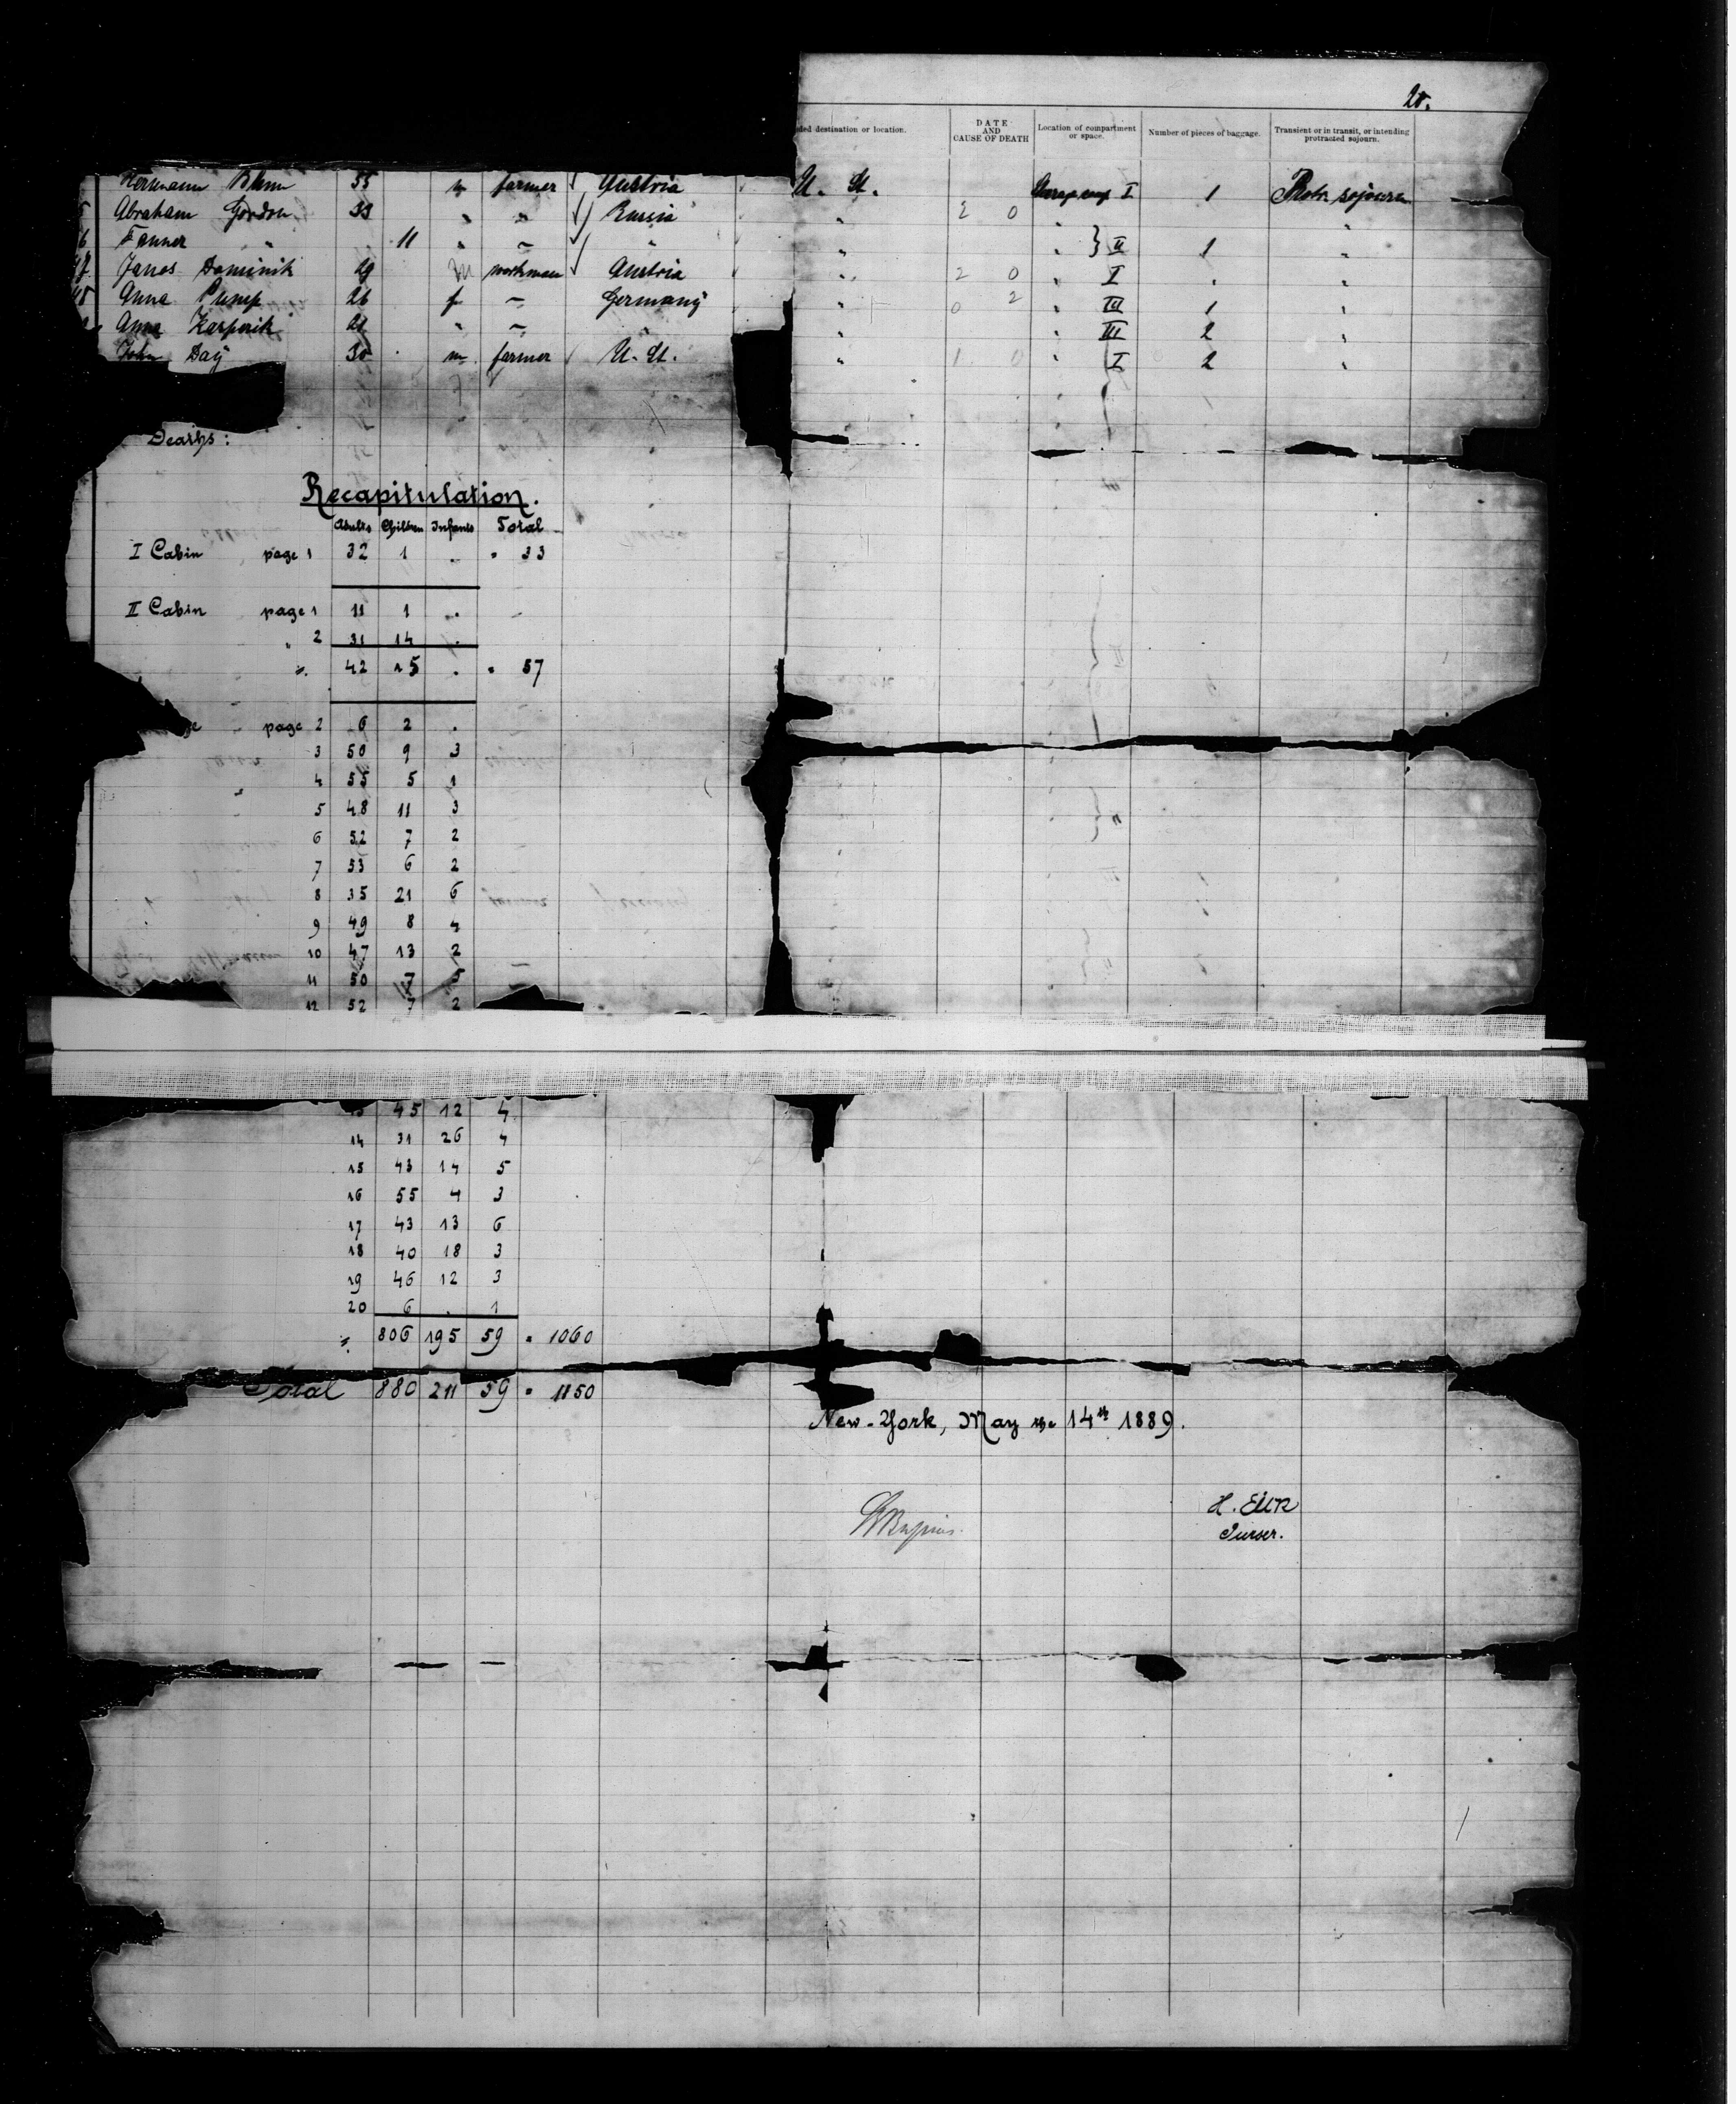 20.
ded destination or location. DATE AND CAUSE OF DEATH Location of compartment or space. Number of pieces of baggage. Transient or in transit, or intending protracted sojourn.
Hermann 55 farmer Austria U. St. I 1 sojourn
Abraham Gordon 33 " " Russia " 2 0 "
6 " 11 " – " " " } II 1 "
Janos Dominik 29 M workman Austria " 2 0 " I "
Anna Pump 26 f – Germany " 0 2 " III 1 "
Anna 21 " – " " " III 2 "
John Day 30 m farmer U. St. " 1 0 " I 2 "
Deaths:
Recapitulation.
Adults Children Infants Total
I Cabin page 1 32 1 . = 33
II Cabin page 1 11 1 .
" 2 31 14 .
42 15 . = 57
page 2 6 2 .
3 50 9 3
4 55 5 1
5 48 11 3
6 52 7 2
7 53 6 2
8 35 21 6
9 49 8 4
10 47 13 2
11 50 7 5
12 52 7 2
13 45 12 4
14 31 26 4
15 43 14 5
16 55 4 3
17 43 13 6
18 40 18 3
19 46 12 3
20 6 . 1
806 195 59 = 1060
Total 880 211 59 = 1150
New-York, May the 14th 1889.
Purser.